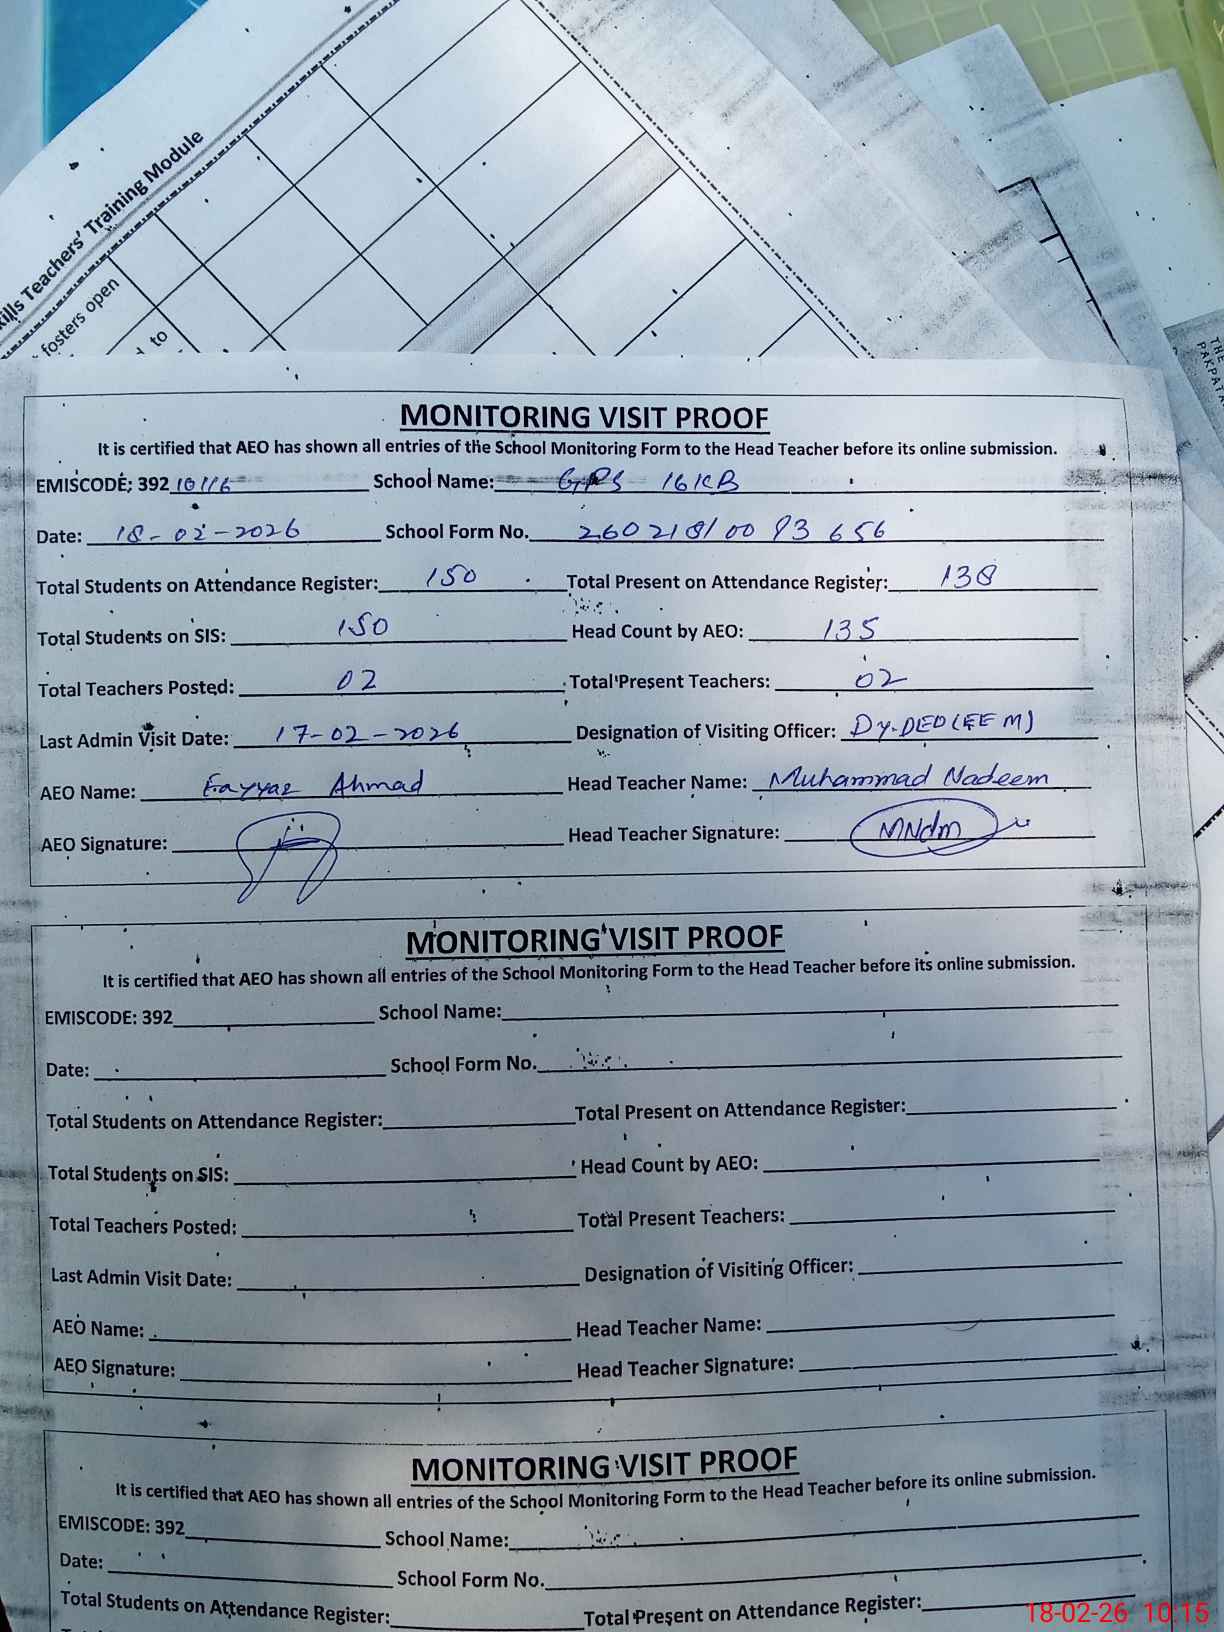 ills Teachers' Training Module
fosters open
to
THE
PAKPATA
MONITORING VISIT PROOF
It is certified that AEO has shown all entries of the School Monitoring Form to the Head Teacher before its online submission.
EMISCODE; 392 10116 School Name: GPS 16KB
Date: 18-02-2026 School Form No. 260218100 93 656
Total Students on Attendance Register: 150 Total Present on Attendance Register: 138
Total Students on SIS: 150 Head Count by AEO: 135
Total Teachers Posted: 02 Total Present Teachers: 02
Last Admin Visit Date: 17-02-2026 Designation of Visiting Officer: Dy.DEO (EE M)
AEO Name: Fayyaz Ahmad Head Teacher Name: Muhammad Nadeem
AEO Signature: Head Teacher Signature: MNdm
MONITORING VISIT PROOF
It is certified that AEO has shown all entries of the School Monitoring Form to the Head Teacher before its online submission.
EMISCODE: 392 School Name:
Date: School Form No.
Total Students on Attendance Register: Total Present on Attendance Register:
Total Students on SIS: Head Count by AEO:
Total Teachers Posted: Total Present Teachers:
Last Admin Visit Date: Designation of Visiting Officer:
AEO Name: Head Teacher Name:
AEO Signature: Head Teacher Signature:
MONITORING VISIT PROOF
It is certified that AEO has shown all entries of the School Monitoring Form to the Head Teacher before its online submission.
EMISCODE: 392 School Name:
Date: School Form No.
Total Students on Attendance Register: Total Present on Attendance Register:
18-02-26 10:15